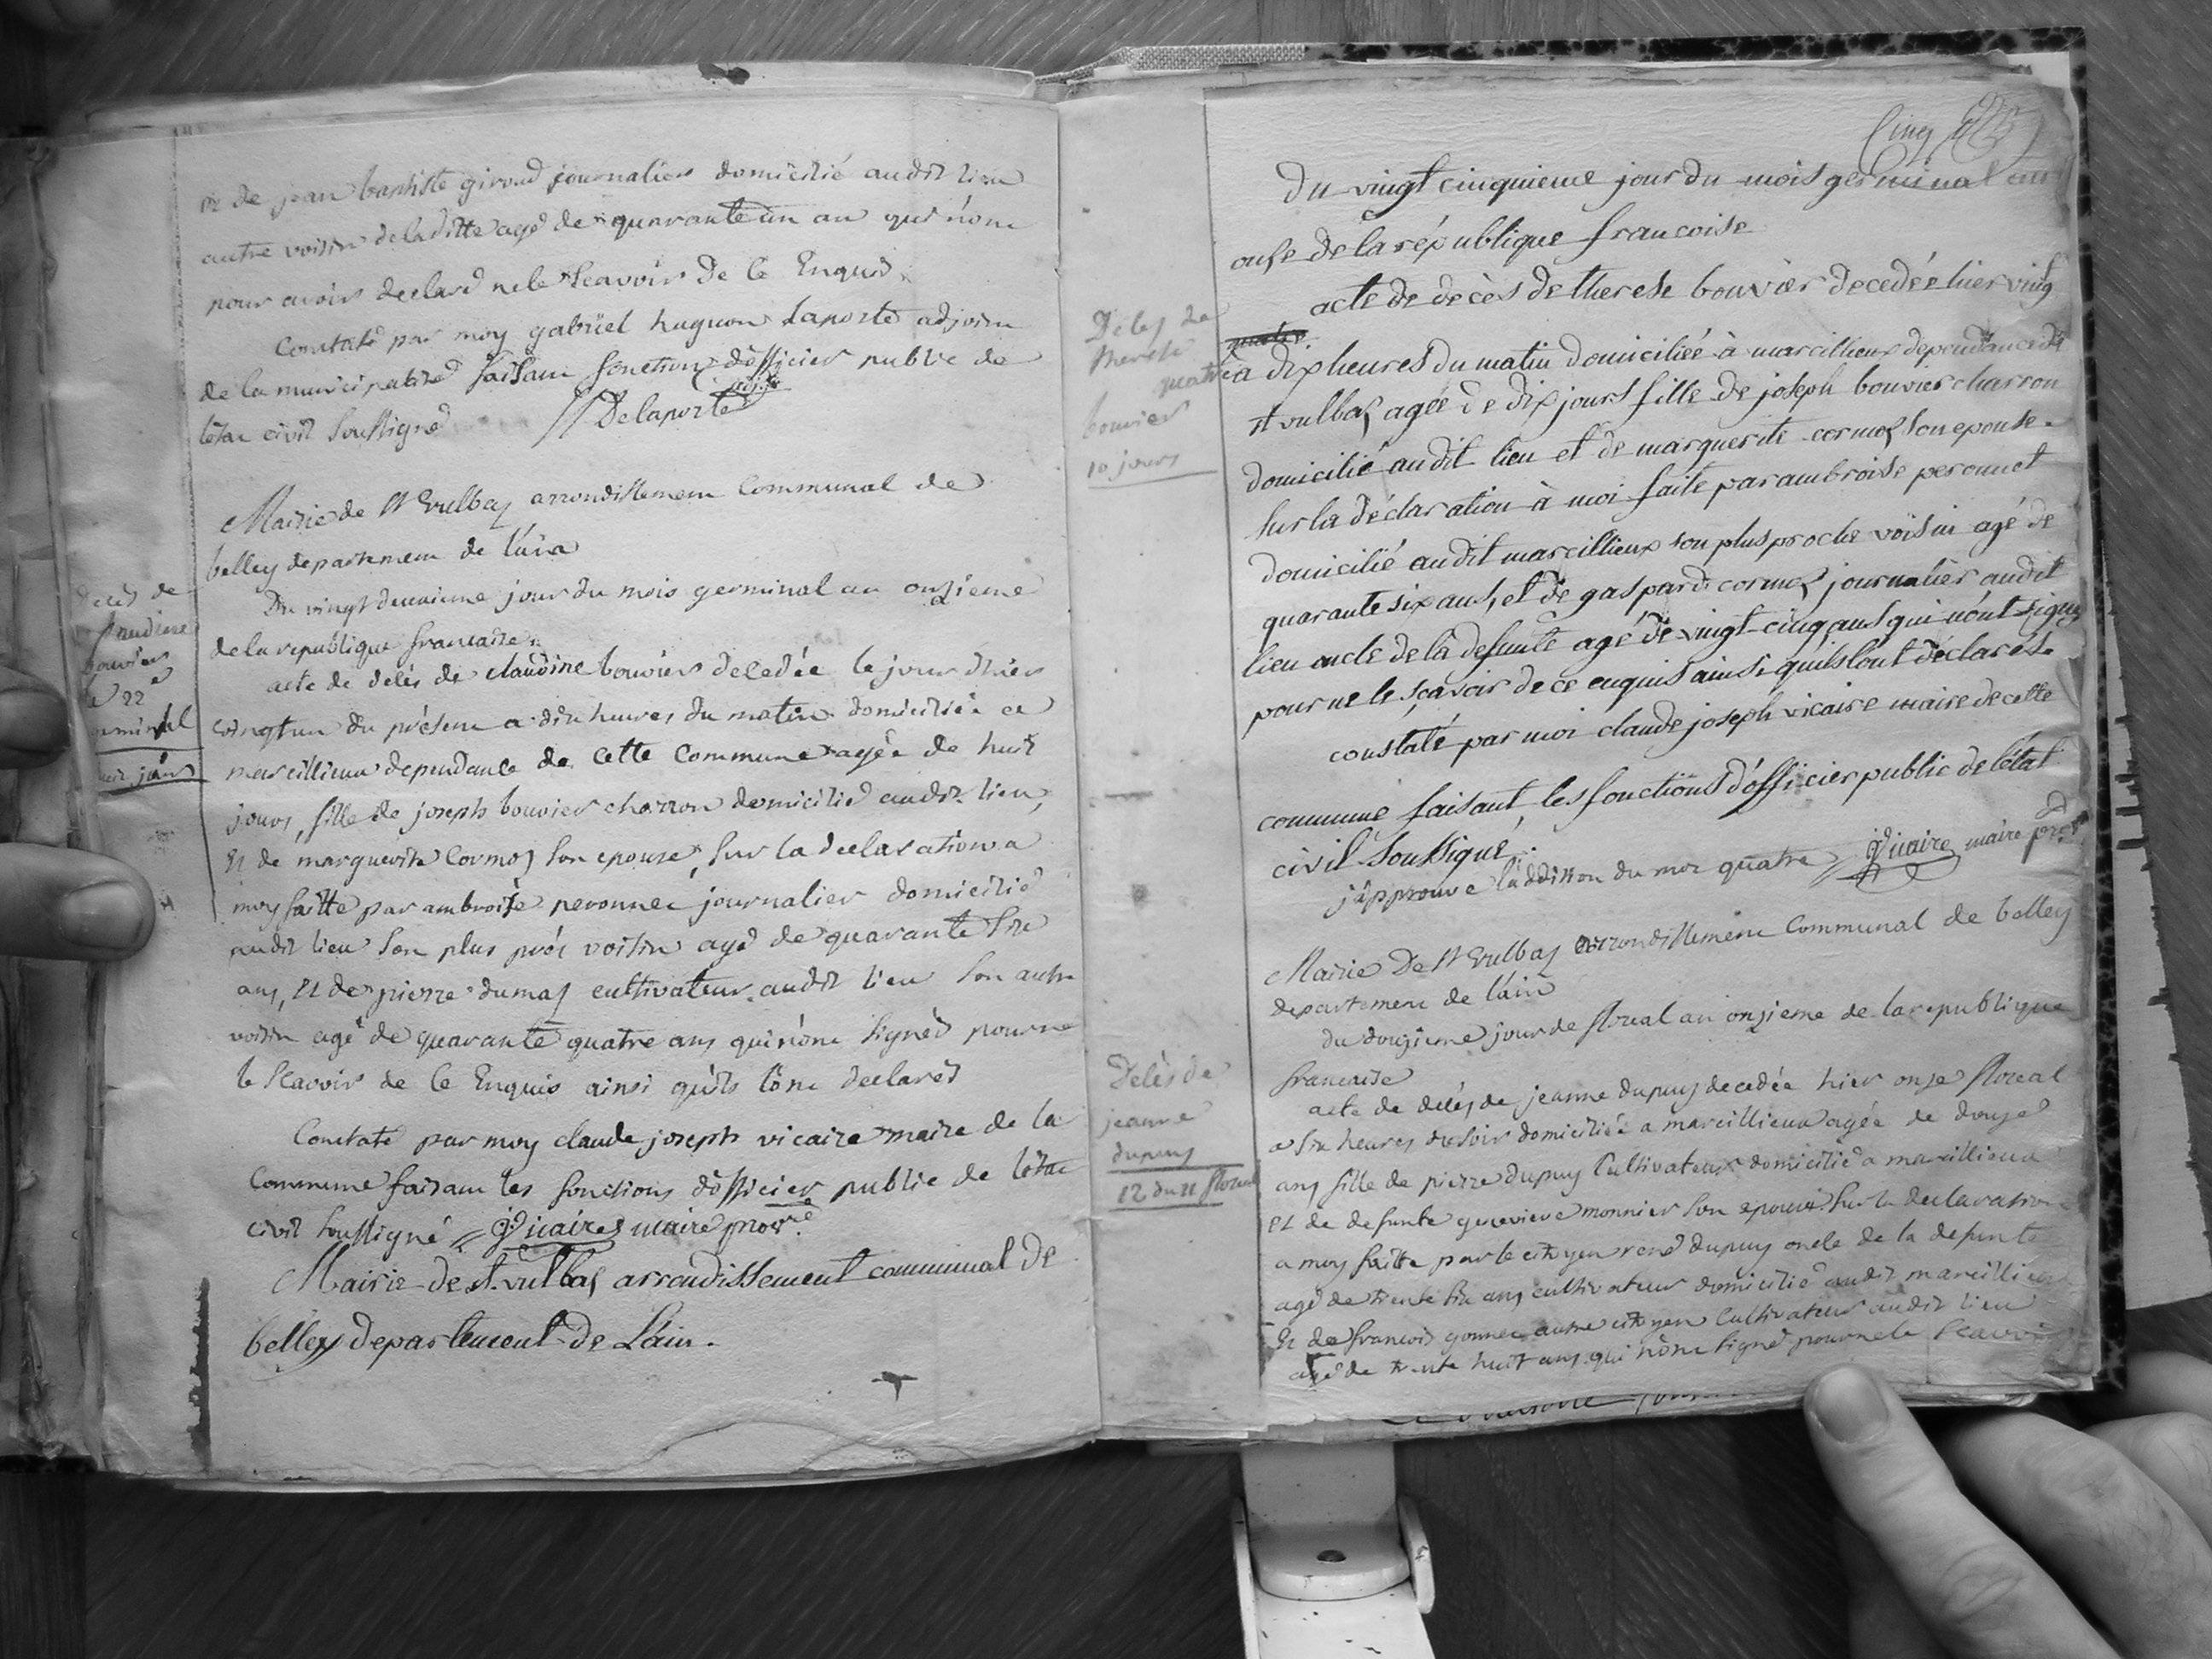 Et de jean baptiste giroud journalier domicilié audit lieu
autre voisin de laditte agé de quarante un an qui n'ont
pour avoir declaré ne le Scavoir De ce Enquis
Contaté par moy gabriel huguon Laporte adjoint
de la municipalité faisant fonction d'officier public de
létat civil Soussigné Delaporte adjoint
Mairie de St Vulbas arrondissement Communal de
belley departement de l'ain
Du vingt deuxieme jour du mois germinal an onzieme
de la republique francaise
Decès de
Claudine
bouvier
le 22e
germinal
huit jours
acte de decès de claudine bouvier decedée le jour d'hier
vingt un du présent a dix heures du matin domiciliée a
marcillieux dependance de cette Commune agée de huit
jours, fille de joseph bouvier charron domicilié audit lieu,
Et de marguerite Cormoz Son epouse, Sur la declaration a
moy faitte par ambroise peronnet journalier domicilié
audit lieu Son plus près voisin agé de quarante Six
ans, Et de pierre dumas cultivateur audit lieu Son autre
voisin agé de quarante quatre ans qui n'ont Signés pour ne
le Scavoir de ce Enquis ainsi qu'ils l'ont declarés
Contaté par moy claude joseph vicaire maire de la
Commune faisant les fonctions d'officier public de l'état
civil Soussigné Vicaire maire provre
Mairie de St. vulbas arrondissement communal de
belley departement de L'ain.
Cinq
Du vingt cinquieme jour du mois germinal an
onse de la république francoise
Decès de
therese
bouvier
10 jours
acte de decès de therese bouvier decedée hier vingt
quatre a dix heures du matin domiciliée à marcillieux dependance de
st vulbas agée de dix jours fille de joseph bouvier charron
domicilié audit lieu et de marguerite cormoz son epouse.
sur la déclaration à moi faite par ambroise peronnet
domicilié audit marcillieux son plus proche voisin agé de
quarante six ans, et de gaspard cormoz journalier audit
lieu oncle de la defunte agé de vingt-cinq ans qui n'ont signé
pour ne le sçavoir de ce enquis ainsi qu'ils l'ont déclarés.
constaté par moi claude joseph vicaire maire de cette
commune faisant les fonctions d'officier public de l'état
civil Soussigné.
j'approuve l'addition du mot quatre Vicaire maire provre
Mairie De St Vulbas arrondissement Communal de belley
departement de l'ain
du douzieme jour de floreal an onzieme de la republique
francaise
Decès de
jeanne
dupuy
12 du 11 floreal
acte de decès de jeanne dupuy decedée hier onze floreal
a Six heures du soir domiciliée a marcillieux agée de douze
ans fille de pierre dupuy Cultivateur domicilié a marcillieux
Et de defunte genevieve monnier Son epouse Sur la declaration
a moy faitte par le citoyen rené dupuy oncle de la defunte
agé de trente Six ans cultivateur domicilié audit marcillieux
Et de francois gonnet autre citoyen Cultivateur audit lieu
agé de trente huit ans qui n'ont Signé pour ne le Scavoir